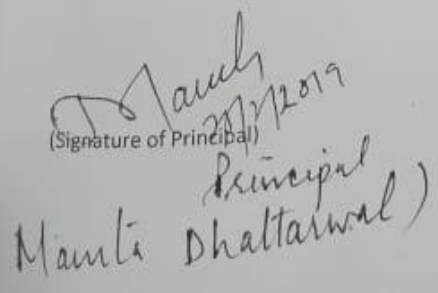 Mamta
2019
(Signature of Principal)
Principal
Mamta Dhattarwal)